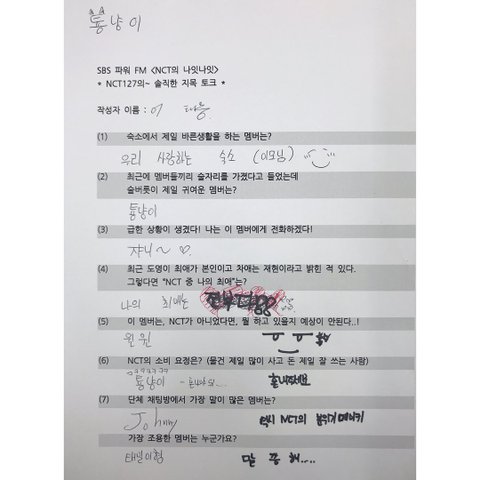 퉁냥이
SBS 파워 FM <NCT의 나잇나잇>
* NCT127의~ 솔직한 지목 토크 *
작성자 이름 : 이 태용
(1) 숙소에서 제일 바른생활을 하는 멤버는?
우리 사랑하는 숙소 (이모님)
(2) 최근에 멤버들끼리 술자리를 가졌다고 들었는데
술버릇이 제일 귀여운 멤버는?
퉁냥이
(3) 급한 상황이 생겼다! 나는 이 멤버에게 전화하겠다!
쟈니~ ♡
(4) 최근 도영이 최애가 본인이고 차애는 재현이라고 밝힌 적 있다.
그렇다면 "NCT 중 나의 최애"는?
나의 최애는 전부 다
(5) 이 멤버는, NCT가 아니었다면, 뭘 하고 있을지 예상이 안된다..!
윈윈
(6) NCT의 소비 요정은? (물건 제일 많이 사고 돈 제일 잘 쓰는 사람)
퉁냥이 혼내주세요
(7) 단체 채팅방에서 가장 말이 많은 멤버는?
Johnny 역시 NCT의 분위기 메이커
가장 조용한 멤버는 누군가요?
태일이형 말 좀 해....